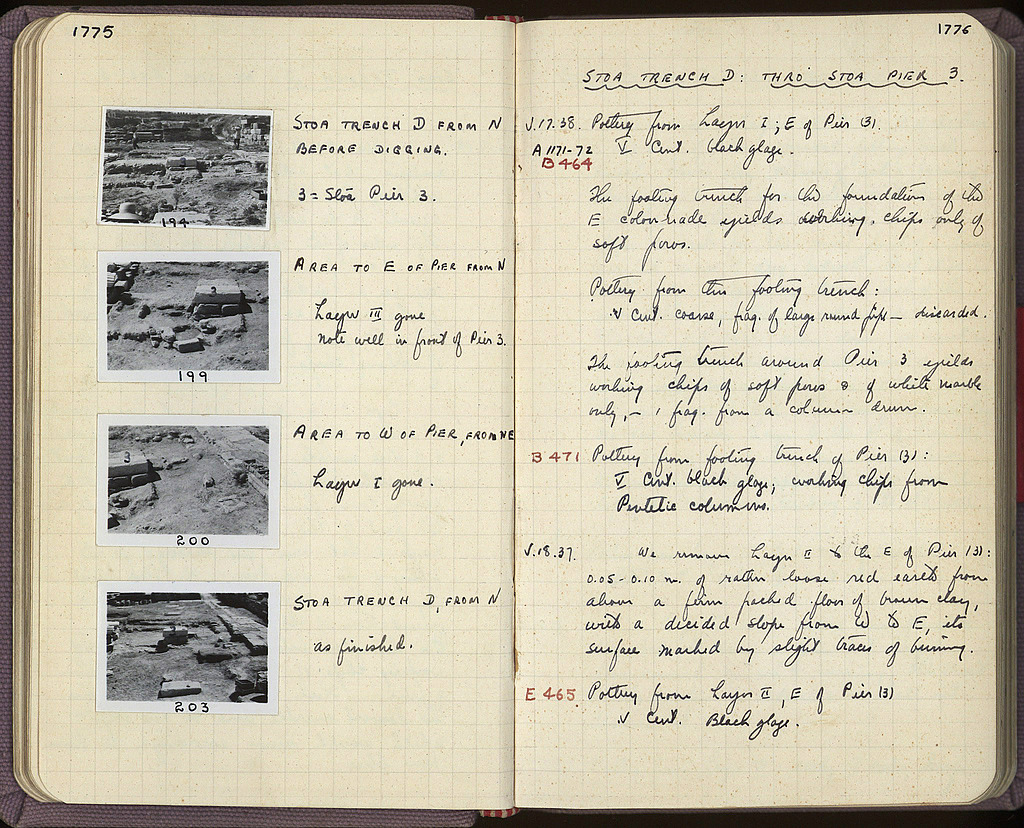 1775
STOA TRENCH D FROM N
BEFORE DIGGING.
3 = Stoa Pier 3.
194
AREA TO E OF PIER FROM N
Layer III gone
note well in front of Pier 3.
199
AREA TO W OF PIER, FROM NE
Layer I gone.
3
200
STOA TRENCH D, FROM N
as finished.
203
1776
STOA TRENCH D: THRO' STOA PIER 3.
V.17.38. Pottery from Layer I; E of Pier (3).
A 1171-72 V Cent. black glaze.
B 464
The footing trench for the foundation of the
E colonnade yields working chips only of
soft poros.
Pottery from this footing trench:
V Cent. coarse, frag. of large round pipe - discarded.
The footing trench around Pier 3 yields
working chips of soft poros & of white marble
only, - 1 frag. from a column drum.
B 471 Pottery from footing trench of Pier (3):
V Cent. black glaze; working chips from
Pentelic columns.
V.18.37. We remove Layer II to the E of Pier (3):
0.05-0.10 m. of rather loose red earth from
above a firm packed floor of brown clay,
with a decided slope from W to E, its
surface marked by slight traces of burning.
E 465 Pottery from Layer II, E of Pier (3)
V Cent. Black glaze.